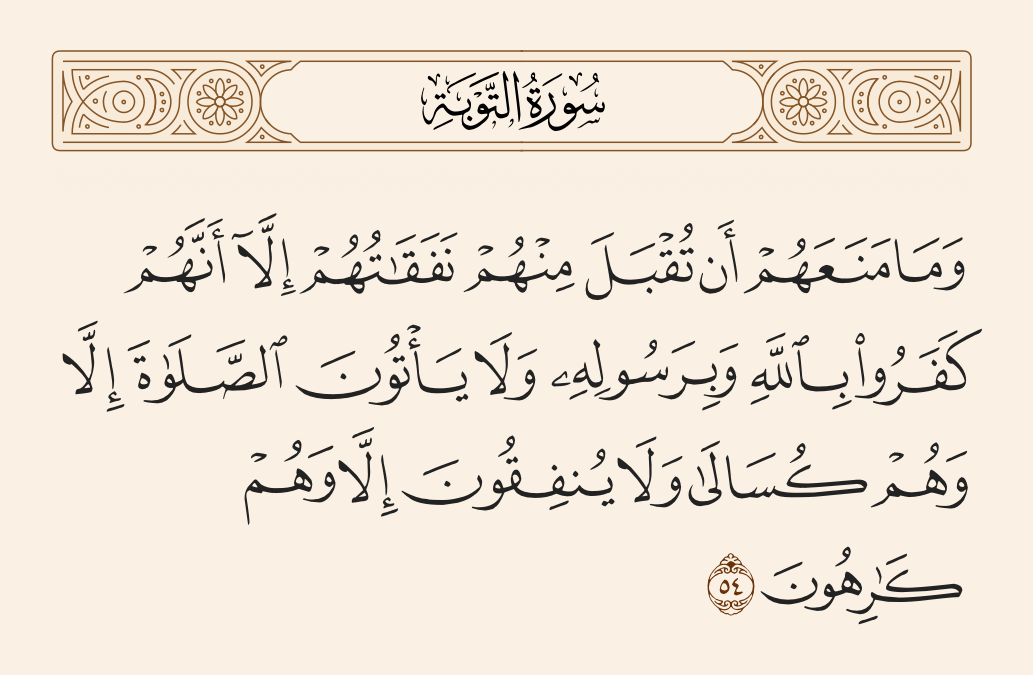 سُورَةُ التَّوْبَةِ
وَمَا مَنَعَهُمْ أَن تُقْبَلَ مِنْهُمْ نَفَقَٰتُهُمْ إِلَّآ أَنَّهُمْ
كَفَرُوا۟ بِٱللَّهِ وَبِرَسُولِهِۦ وَلَا يَأْتُونَ ٱلصَّلَوٰةَ إِلَّا
وَهُمْ كُسَالَىٰ وَلَا يُنفِقُونَ إِلَّا وَهُمْ
كَـٰرِهُونَ ٥٤